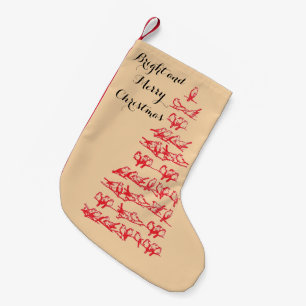 Bright and
Merry
Christmas